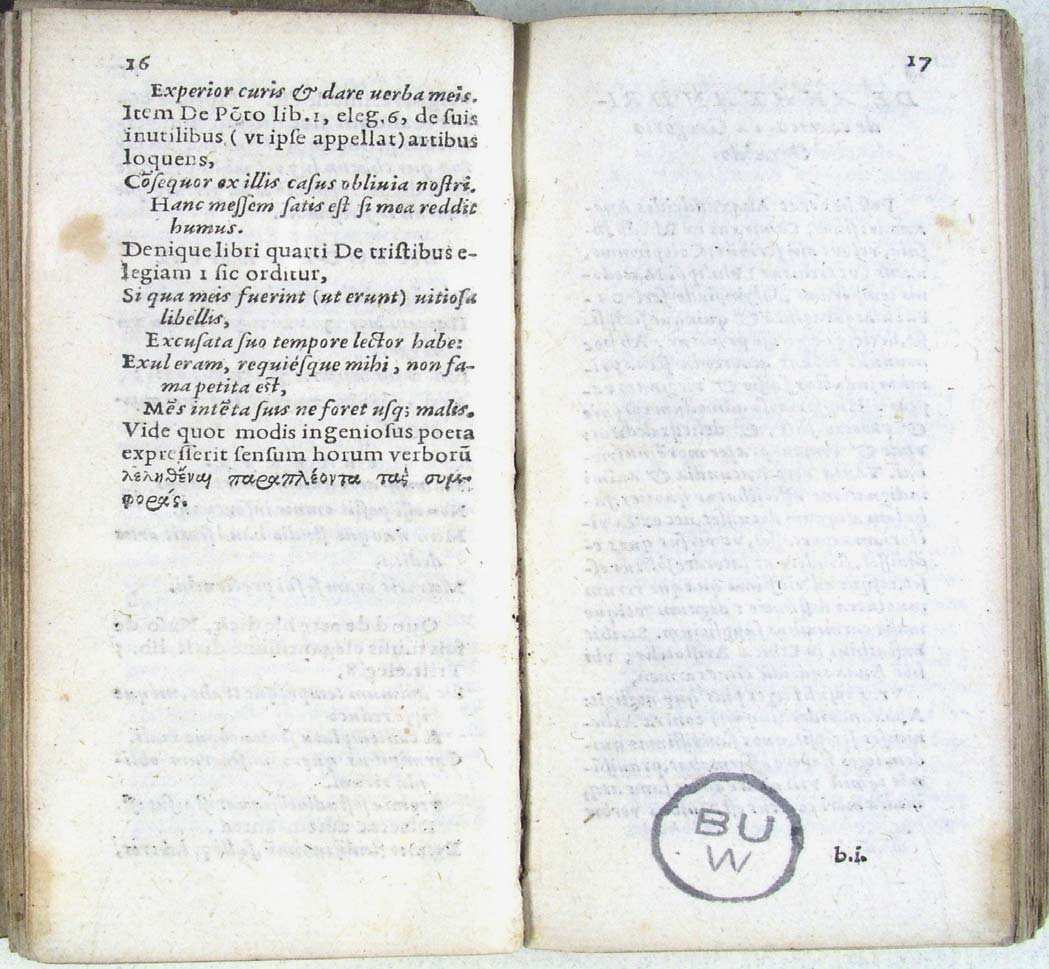 16
Experior curis & dare uerba meis.
Item De Põto lib. 1, eleg. 6, de suis
inutilibus (vt ipse appellat) artibus
loquens,
Cõsequor ex illis casus obliuia nostri.
Hanc messem satis est si mea reddit
humus.
Denique libri quarti De tristibus e-
legiam 1 sic orditur,
Si qua meis fuerint (ut erunt) uitiosa
libellis,
Excusata suo tempore lector habe:
Exul eram, requiésque mihi, non fa-
ma petita est,
Mẽs intẽta suis ne foret usq; malis.
Vide quot modis ingeniosus poeta
expresserit sensum horum verborũ
λεληθέναι παραπλέοντα τὰς συμ-
φοράς.
17
BU
W
b.i.